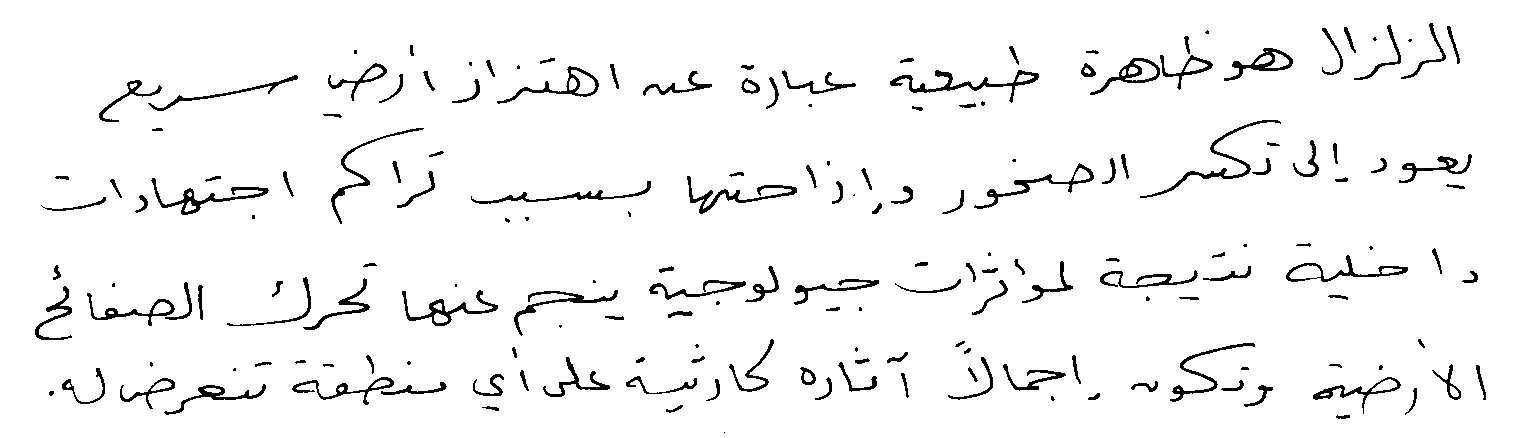 الزلزال هو ظاهرة طبيعية عبارة عن اهتزاز أرضي سريع
يعود إلى تكسر الصخور وإزاحتها بسبب تراكم اجتهادات
داخلية نتيجة لمؤاثرات جيولوجية ينجم عنها تحرك الصفائح
الأرضية وتكون إجمالاً آثاره كارثية على أي منطقة تتعرض له.